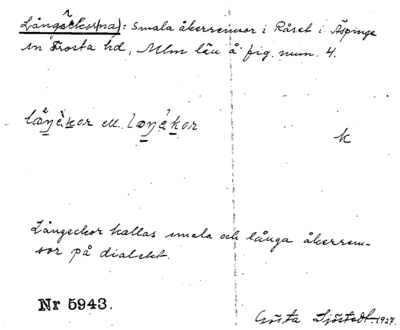 Långåckor(na): Smala åkerremsor i Råset i Äspinge
sn Frosta hd, Mlm län å fig. num. 4.
k
Långeckor kallas smala och långa åkerrem-
sor på dialekt.
Nr 5943.
Gösta Sjöstedt 1927.